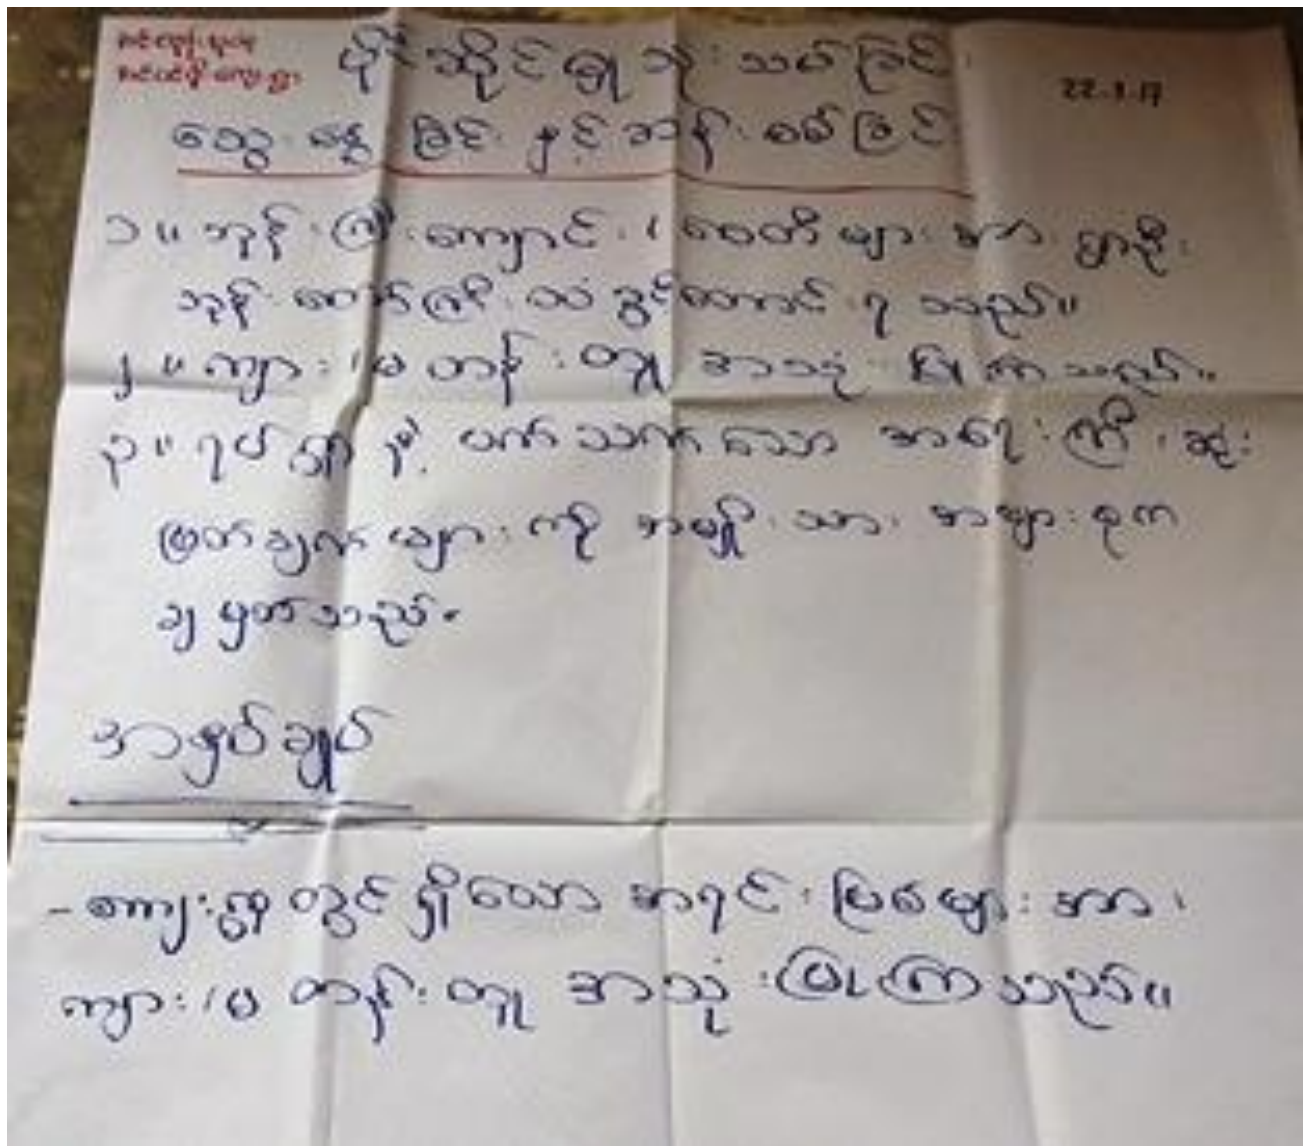 ပိုင်ဆိုင်မှု သုံးသပ်ခြင်း
22.1.17
ဆွေးနွေးခြင်း နှင့်ဆန်းစစ်ခြင်း
၁။ ဘုန်းကြီးကျောင်း၊ စေတီများအား ရွာဦး
ဘုန်းတော်ကြီးထံ ခွင့်တောင်းရသည်။
၂။ ကျား၊မ တန်းတူ အသုံးပြုကြသည်။
၃။ ရပ်ရွာနှင့် ပတ်သက်သော အရေးကြီးဆုံး
ဖြတ်ချက်များကို အမျိုးသားအများစုက
ချမှတ်သည်။
အနှစ်ချုပ်
- ကျေးရွာတွင်ရှိသော အရင်းမြစ်များအား
ကျား၊မ တန်းတူ အသုံးပြုကြသည်။